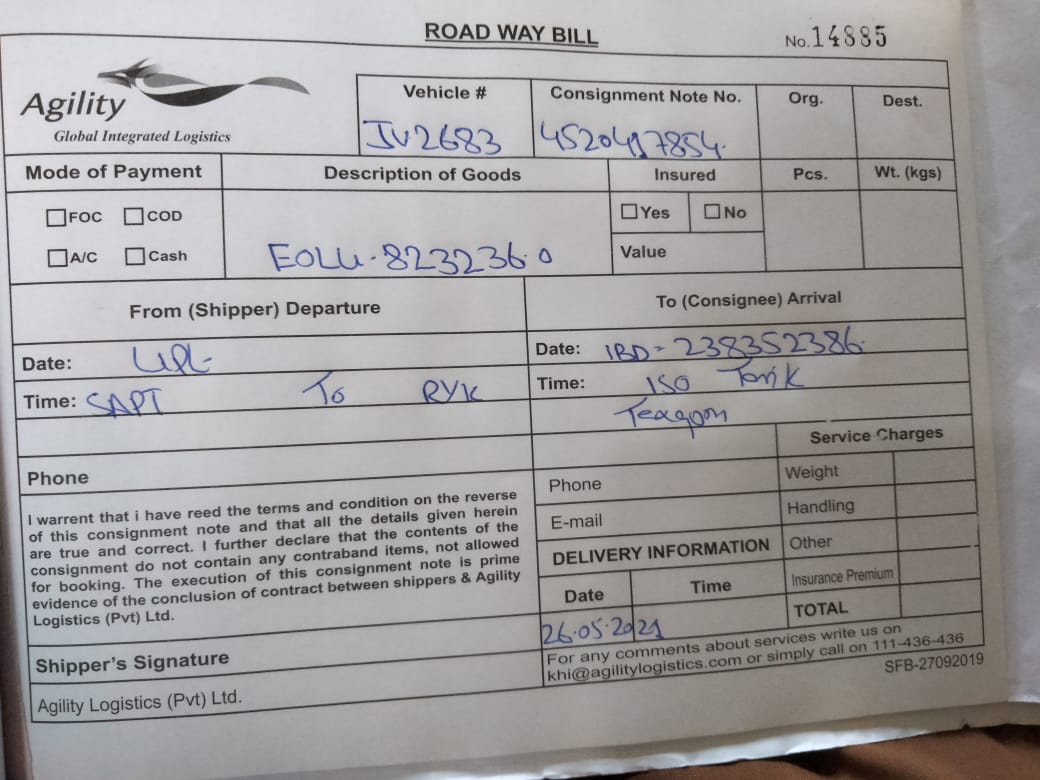 ROAD WAY BILL
No. 14885
Agility
Global Integrated Logistics
Vehicle #
JV2683
Consignment Note No.
4520417854.
Org.
Dest.
Mode of Payment
Description of Goods
Insured
Pcs.
Wt. (kgs)
FOC COD
A/C Cash
EOLU.823236.0
Yes No
Value
From (Shipper) Departure
To (Consignee) Arrival
Date:
Date: IBD-238352386.
Time: SAPT To RYK
Time: ISO Tank
Phone
I warrent that i have reed the terms and condition on the reverse
of this consignment note and that all the details given herein
are true and correct. I further declare that the contents of the
consignment do not contain any contraband items, not allowed
for booking. The execution of this consignment note is prime
evidence of the conclusion of contract between shippers & Agility
Logistics (Pvt) Ltd.
Shipper's Signature
Agility Logistics (Pvt) Ltd.
Phone
E-mail
DELIVERY INFORMATION
Date Time
26.05.2021
Service Charges
Weight
Handling
Other
Insurance Premium
TOTAL
For any comments about services write us on
khi@agilitylogistics.com or simply call on 111-436-436
SFB-27092019